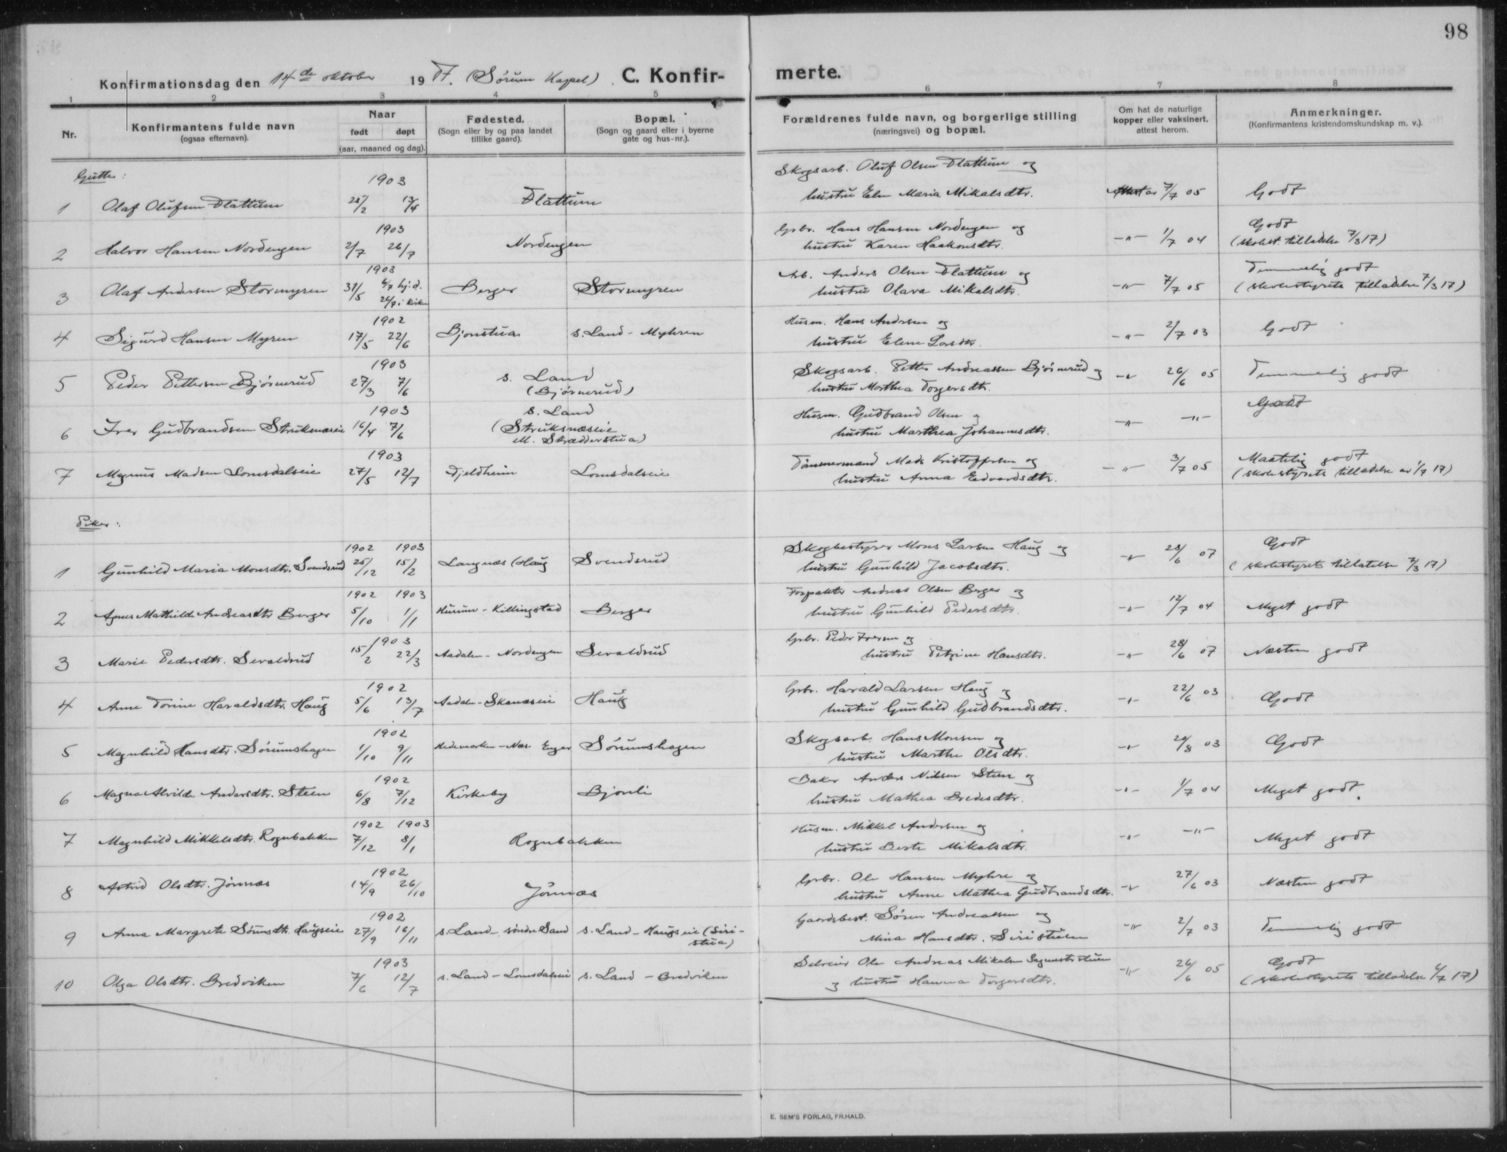 98
Konfirmationsdag den 14de oktober 1917. (Sørum Kapel). C. Konfirmerte.
1 2 3 4 5 6 7 8
Nr.
Konfirmantens fulde navn
(ogsaa efternavn).
Naar
født døpt
(aar, maaned og dag).
Fødested.
(Sogn eller by og paa landet
tillike gaard).
Bopæl.
(Sogn og gaard eller i byerne
gate og hus-nr.).
Forældrenes fulde navn, og borgerlige stilling
(næringsvei) og bopæl.
Om hat de naturlige
kopper eller vaksinert,
attest herom.
Anmerkninger.
(Konfirmantens kristendomskundskap m. v.).
Gutter:
1903
Skogsarb. Oluf Olsen Flattum og
1 Olaf Olufsen Flattum 28/2 13/4 Flattum hustru Elen Maria Mikalsdtr. 7/7 05 Godt
1903
Grbr. Hans Hansen Nordengen og Godt
2 Halvor Hansen Nordengen 2/7 26/7 Nordengen hustru Karen Haakonsdtr. -"- 1/7 04 (skolest. tilladelse 7/3 17)
1903
Arb. Anders Olsen Flattum og Temmelig godt
3 Olaf Andersen Stormyren 31/5 hj.d. i kirken Berger Stormyren hustru Olava Mikalsdtr. -"- 7/7 05 (skolestyrets tilladelse 7/3 17)
1902
Husm. Hans Andersen og
4 Sigurd Hansen Myren 17/5 22/6 Bjonstua s. Land - Myhren hustru Elene Larsdtr. -"- 2/7 03 Godt
1903
Skogsarb. Petter Andreassen Bjørnerud og
5 Peder Pettersen Bjørnerud 27/3 7/6 s. Land (Bjørnerud) hustru Marthea Torgersdtr. -"- 26/6 05 Temmelig godt
1903
Husm. Gudbrand Olsen og
6 Iver Gudbrandsen Struksnæseie 16/4 7/6 s. Land (Struksnæseie Skrædderstua) hustru Marthea Johannesdtr. -"- -"- Godt
1903
Tømmermand Mads Kristoffersen og Maatelig godt
7 Magnus Madsen Lomsdalseie 27/5 12/7 Fjeldheim Lomsdalseie hustru Anna Edvardsdtr. -"- 3/7 05 (skolestyrets tilladelse av 1/7 17)
Piker:
1902 1903
Skogbestyrer Mons Larsen Haug og Godt
1 Gunhild Maria Monsdtr. Svendsrud 25/12 15/2 Langnæs (Haug Svendsrud hustru Gunhild Jacobsdtr. -"- 28/6 07 (skolestyrets tillatelse 7/3 17)
1902 1903
Forpakter Andreas Olsen Berger og
2 Agnes Mathilde Andreasdtr. Berger 5/10 1/1 Hurum - Killingstad Berger hustru Gunhild Pedersdtr. -"- 12/7 04 Meget godt
1903
Grbr. Peder Iversen og
3 Marie Pedersdtr. Sevaldrud 15/2 22/3 Aadalen - Nordengen Sevaldrud hustru Petrine Hansdtr. -"- 28/6 07 Næsten godt
1902
Grbr. Harald Larsen Haug og
4 Anne Torine Haraldsdtr. Haug 5/6 13/7 Aadalen - Skanæseie Haug hustru Gunhild Gudbrandsdtr. -"- 22/6 03 Godt
1902
Skogsarb. Hans Monsen og
5 Magnhild Hansdtr. Sørumshagen 1/10 9/11 Hedemarken - Næs Enger Sørumshagen hustru Marthe Olsdtr. -"- 24/8 03 Godt
1902
Baker Anders Nilsen Steen og
6 Magna Alvilde Andersdtr. Steen 6/8 7/12 Kirkeby Bjonli hustru Mathea Bredesdtr. -"- 1/7 04 Meget godt.
1902 1903
Husm. Mikkel Andersen og
7 Magnhild Mikkelsdtr. Rognebakken 7/12 8/1 Rognebakken hustru Berte Mikalsdtr. -"- -"- Meget godt
1902
Grbr. Ole Hansen Myhre og
8 Astrid Olsdtr. Jønnæs 14/9 26/10 Jønnæs hustru Anne Mathea Gudbrandsdtr. -"- 27/6 03 Næsten godt
1902
Gaardsbest. Søren Andreassen og
9 Anna Margrete Sørensdtr. Haugseie 27/9 16/11 s. Land - søndre Sand s. Land - Haugseie (Siristua) Mina Hansdtr. Siristuen -"- 2/7 03 Temmelig godt
1903
Selveier Ole Andreas Mikalsen og hustru Hanna Torgersdtr.
10 Olga Olsdtr. Bredviken 7/6 12/7 s. Land - Lomsdalseie s. Land - Bredviken -"- 26/6 05 Godt (skolestyrets tilladelse 4/7 17)
E. SEM'S FORLAG, FR.HALD.